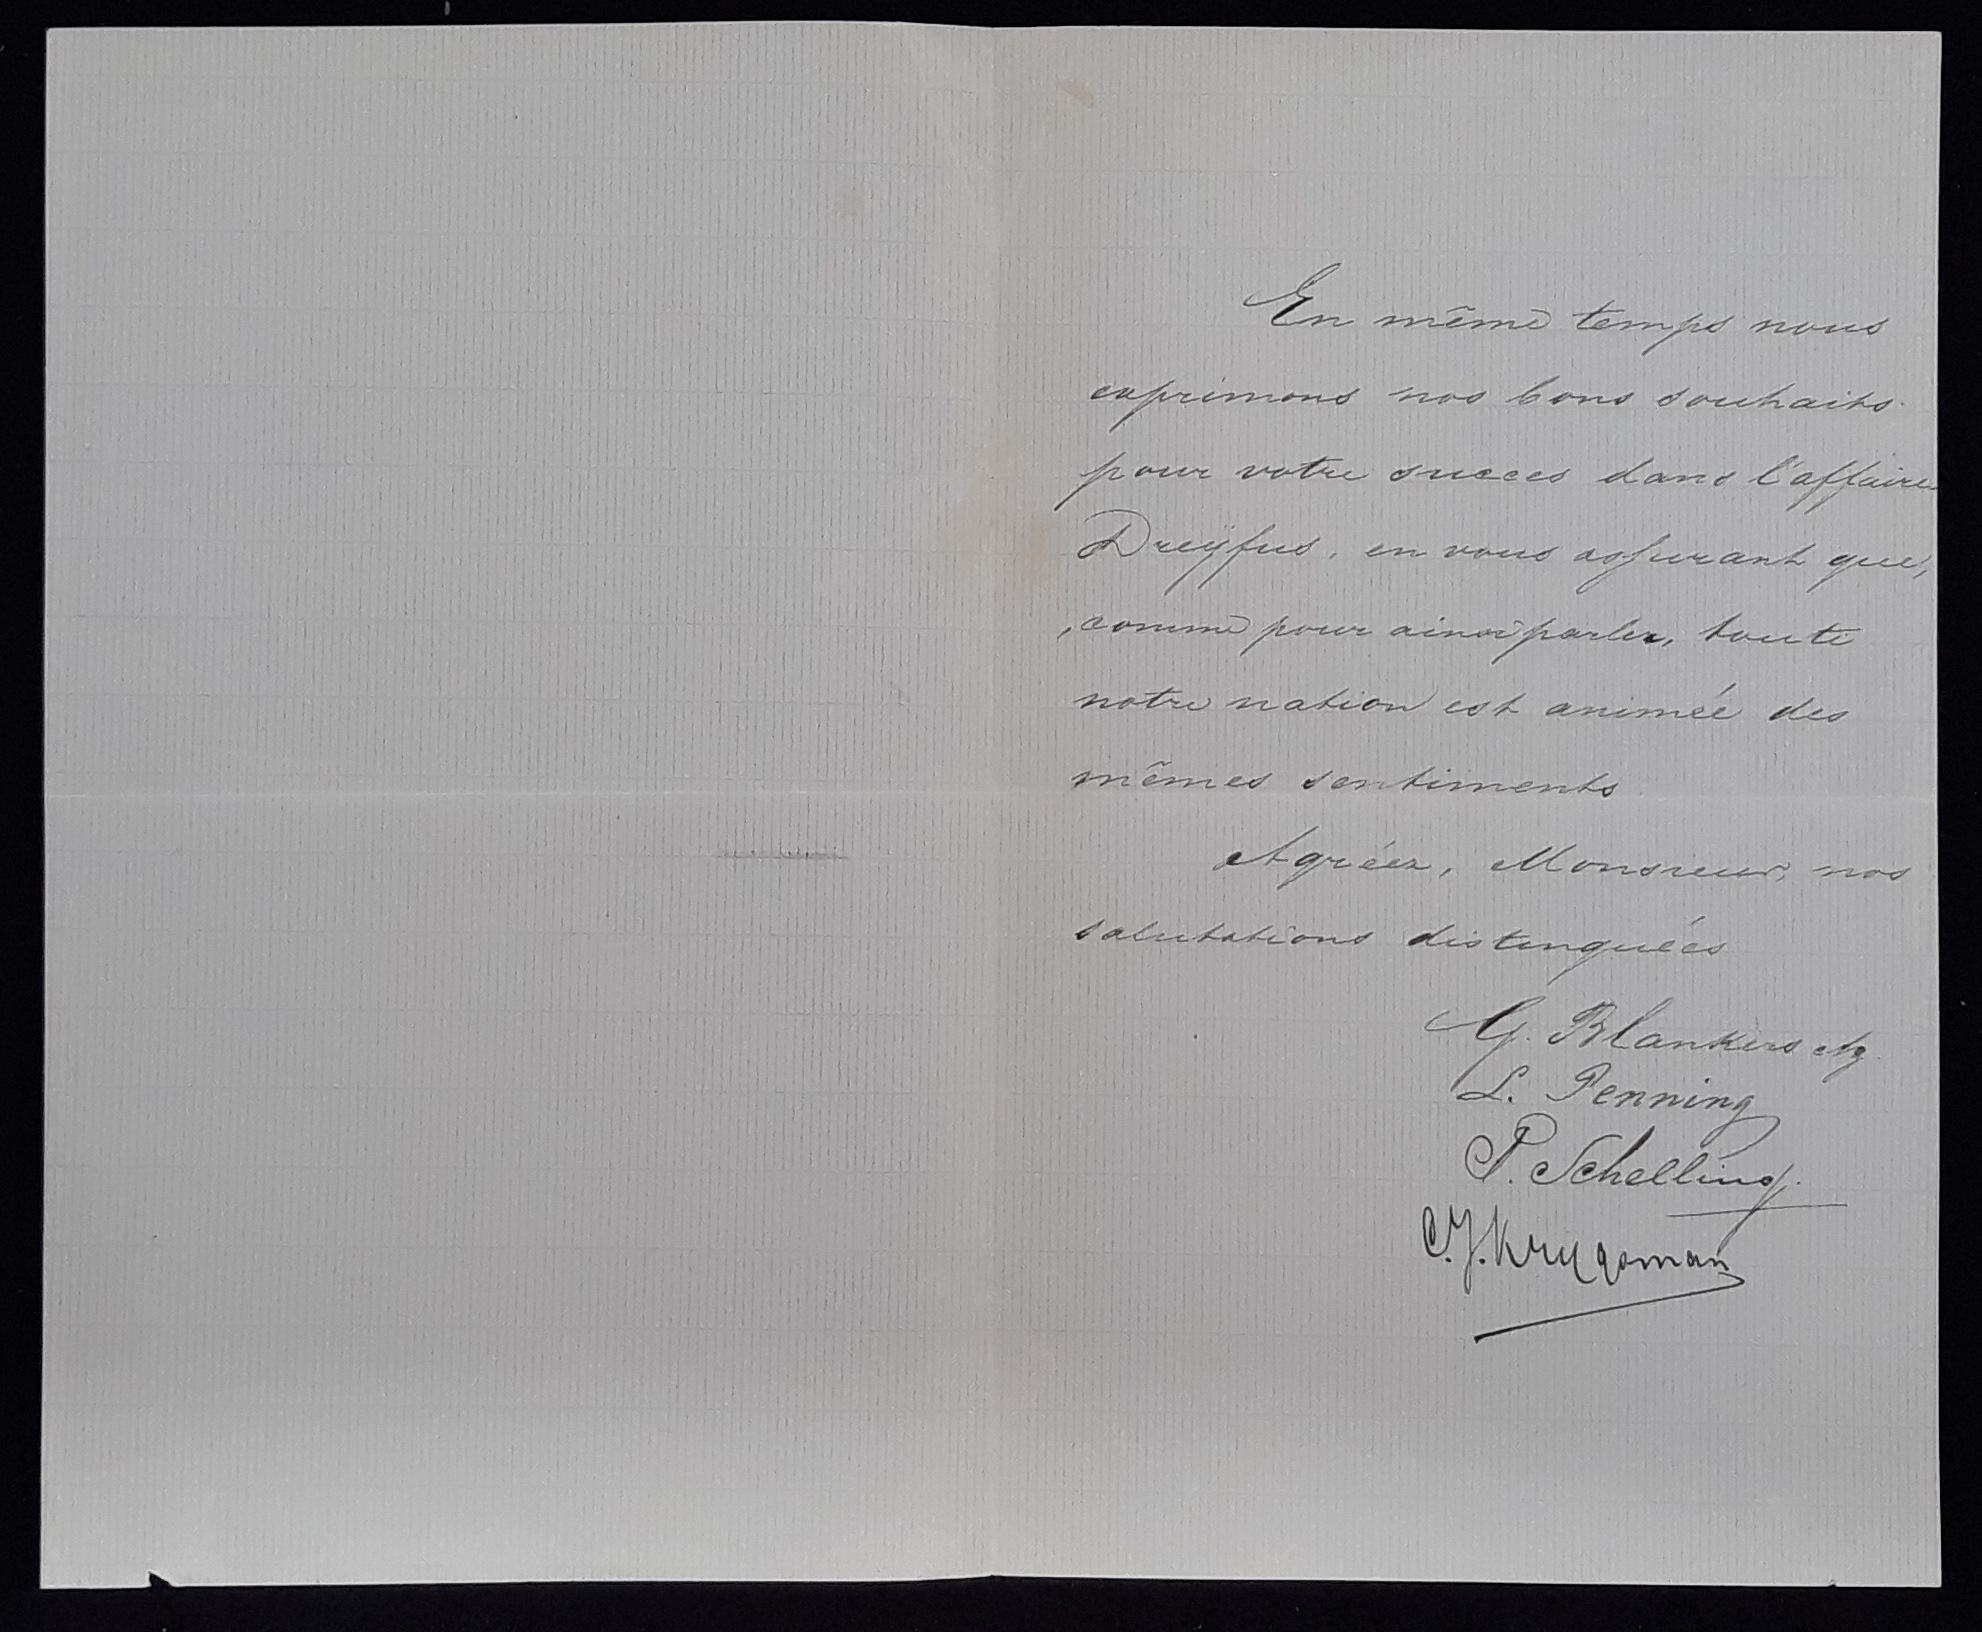 En même temps nous
exprimons nos bons souhaits
pour votre succes dans l'affaire
Dreÿfus, en vous assurant que,
, comme pour ainsi parler, toute
notre nation est animée des
mêmes sentiments
Agréez, Monsieur, nos
salutations distinguées
G. Blankers Az.
L. Penning
P. Schelling.
C. J. Kruysman